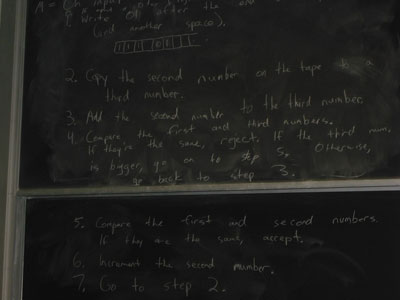 M = On input
1. Write 01 after the end
(and another space).
2. Copy the second number on the tape to a
third number.
3. Add the second number to the third number.
4. Compare the first and third numbers.
If they're the same, reject. If the third num.
is bigger, go on to step 5. Otherwise,
go back to step 3.
5. Compare the first and second numbers.
If they are the same, accept.
6. Increment the second number.
7. Go to step 2.